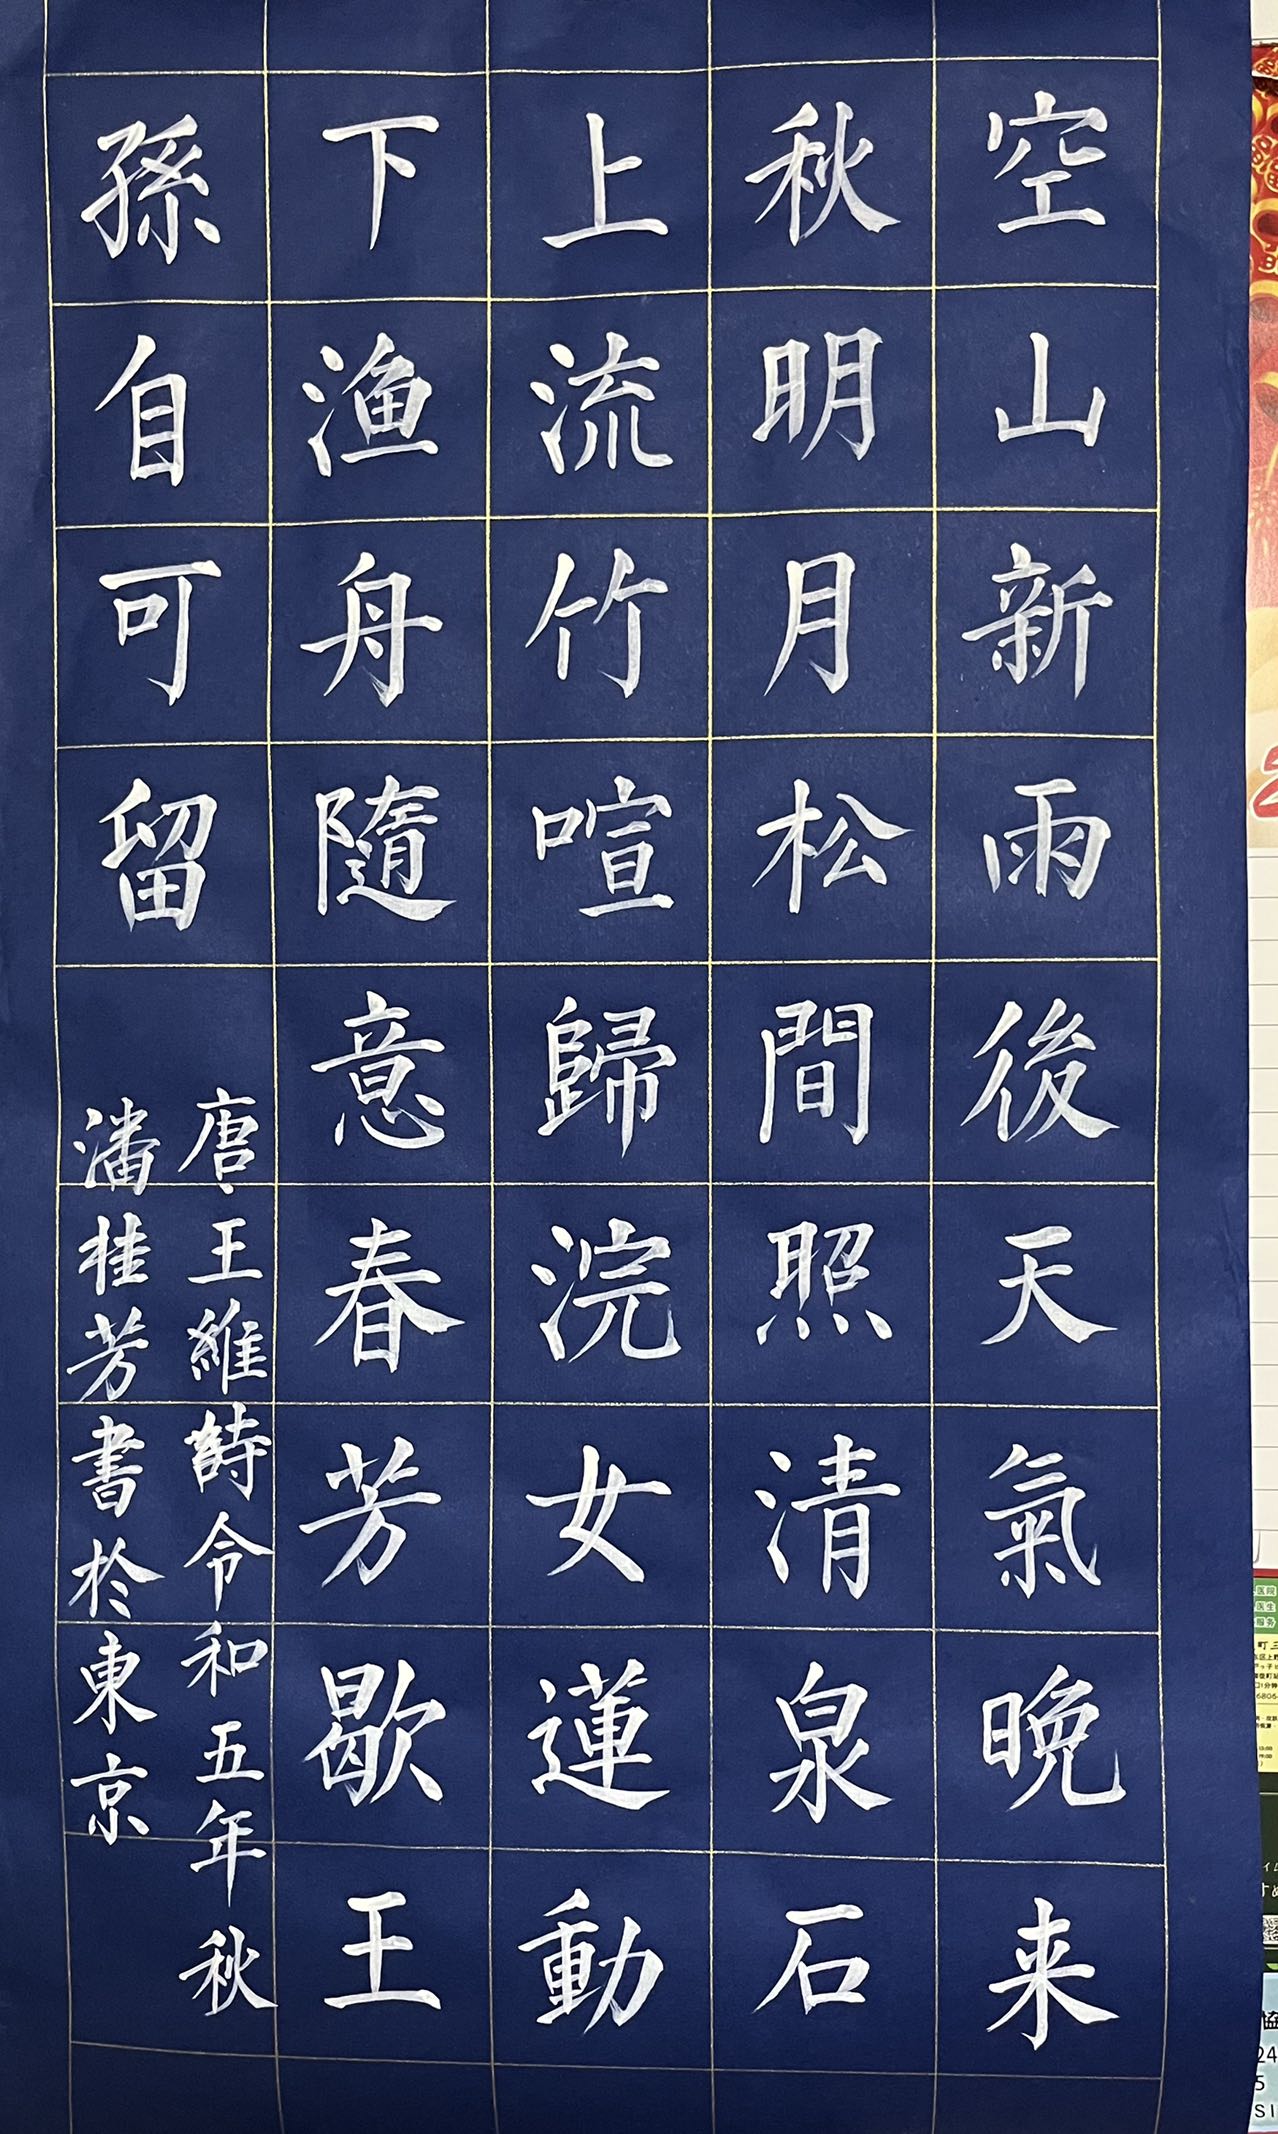 空山新雨後天氣晩来
秋明月松間照清泉石
上流竹喧歸浣女蓮動
下渔舟隨意春芳歇王
孫自可留
唐、王維詩令和五年秋
潘桂芳書於東京